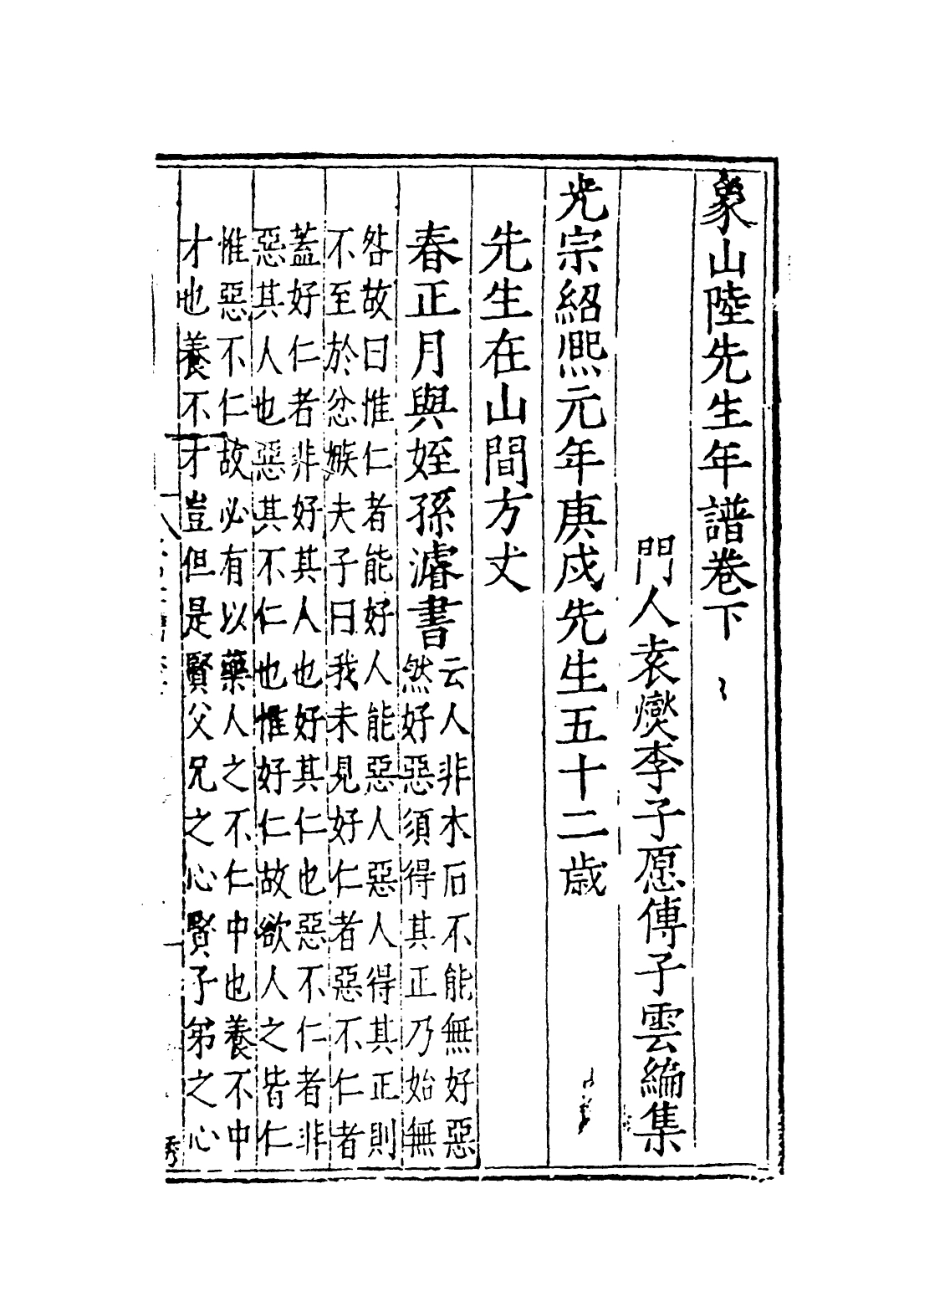 象山陸先生年譜卷下
門人袁燮李子愿傳子雲編集
光宗紹熙元年庚戌先生五十二歲
先生在山間方丈
春正月與姪孫濬書
云人非木石不能無好惡
然好惡須得其正乃始無
咎故曰惟仁者能好人能惡人惡人得其正則
不至於忿嫉夫子曰我未見好仁者惡不仁者
蓋好仁者非好其人也好其仁也惡不仁者非
惡其人也惡其不仁也惟好仁故欲人之皆仁
惟惡不仁故必有以藥人之不仁中也養不中
才也養不才豈但是賢父兄之心賢子弟之心
秀